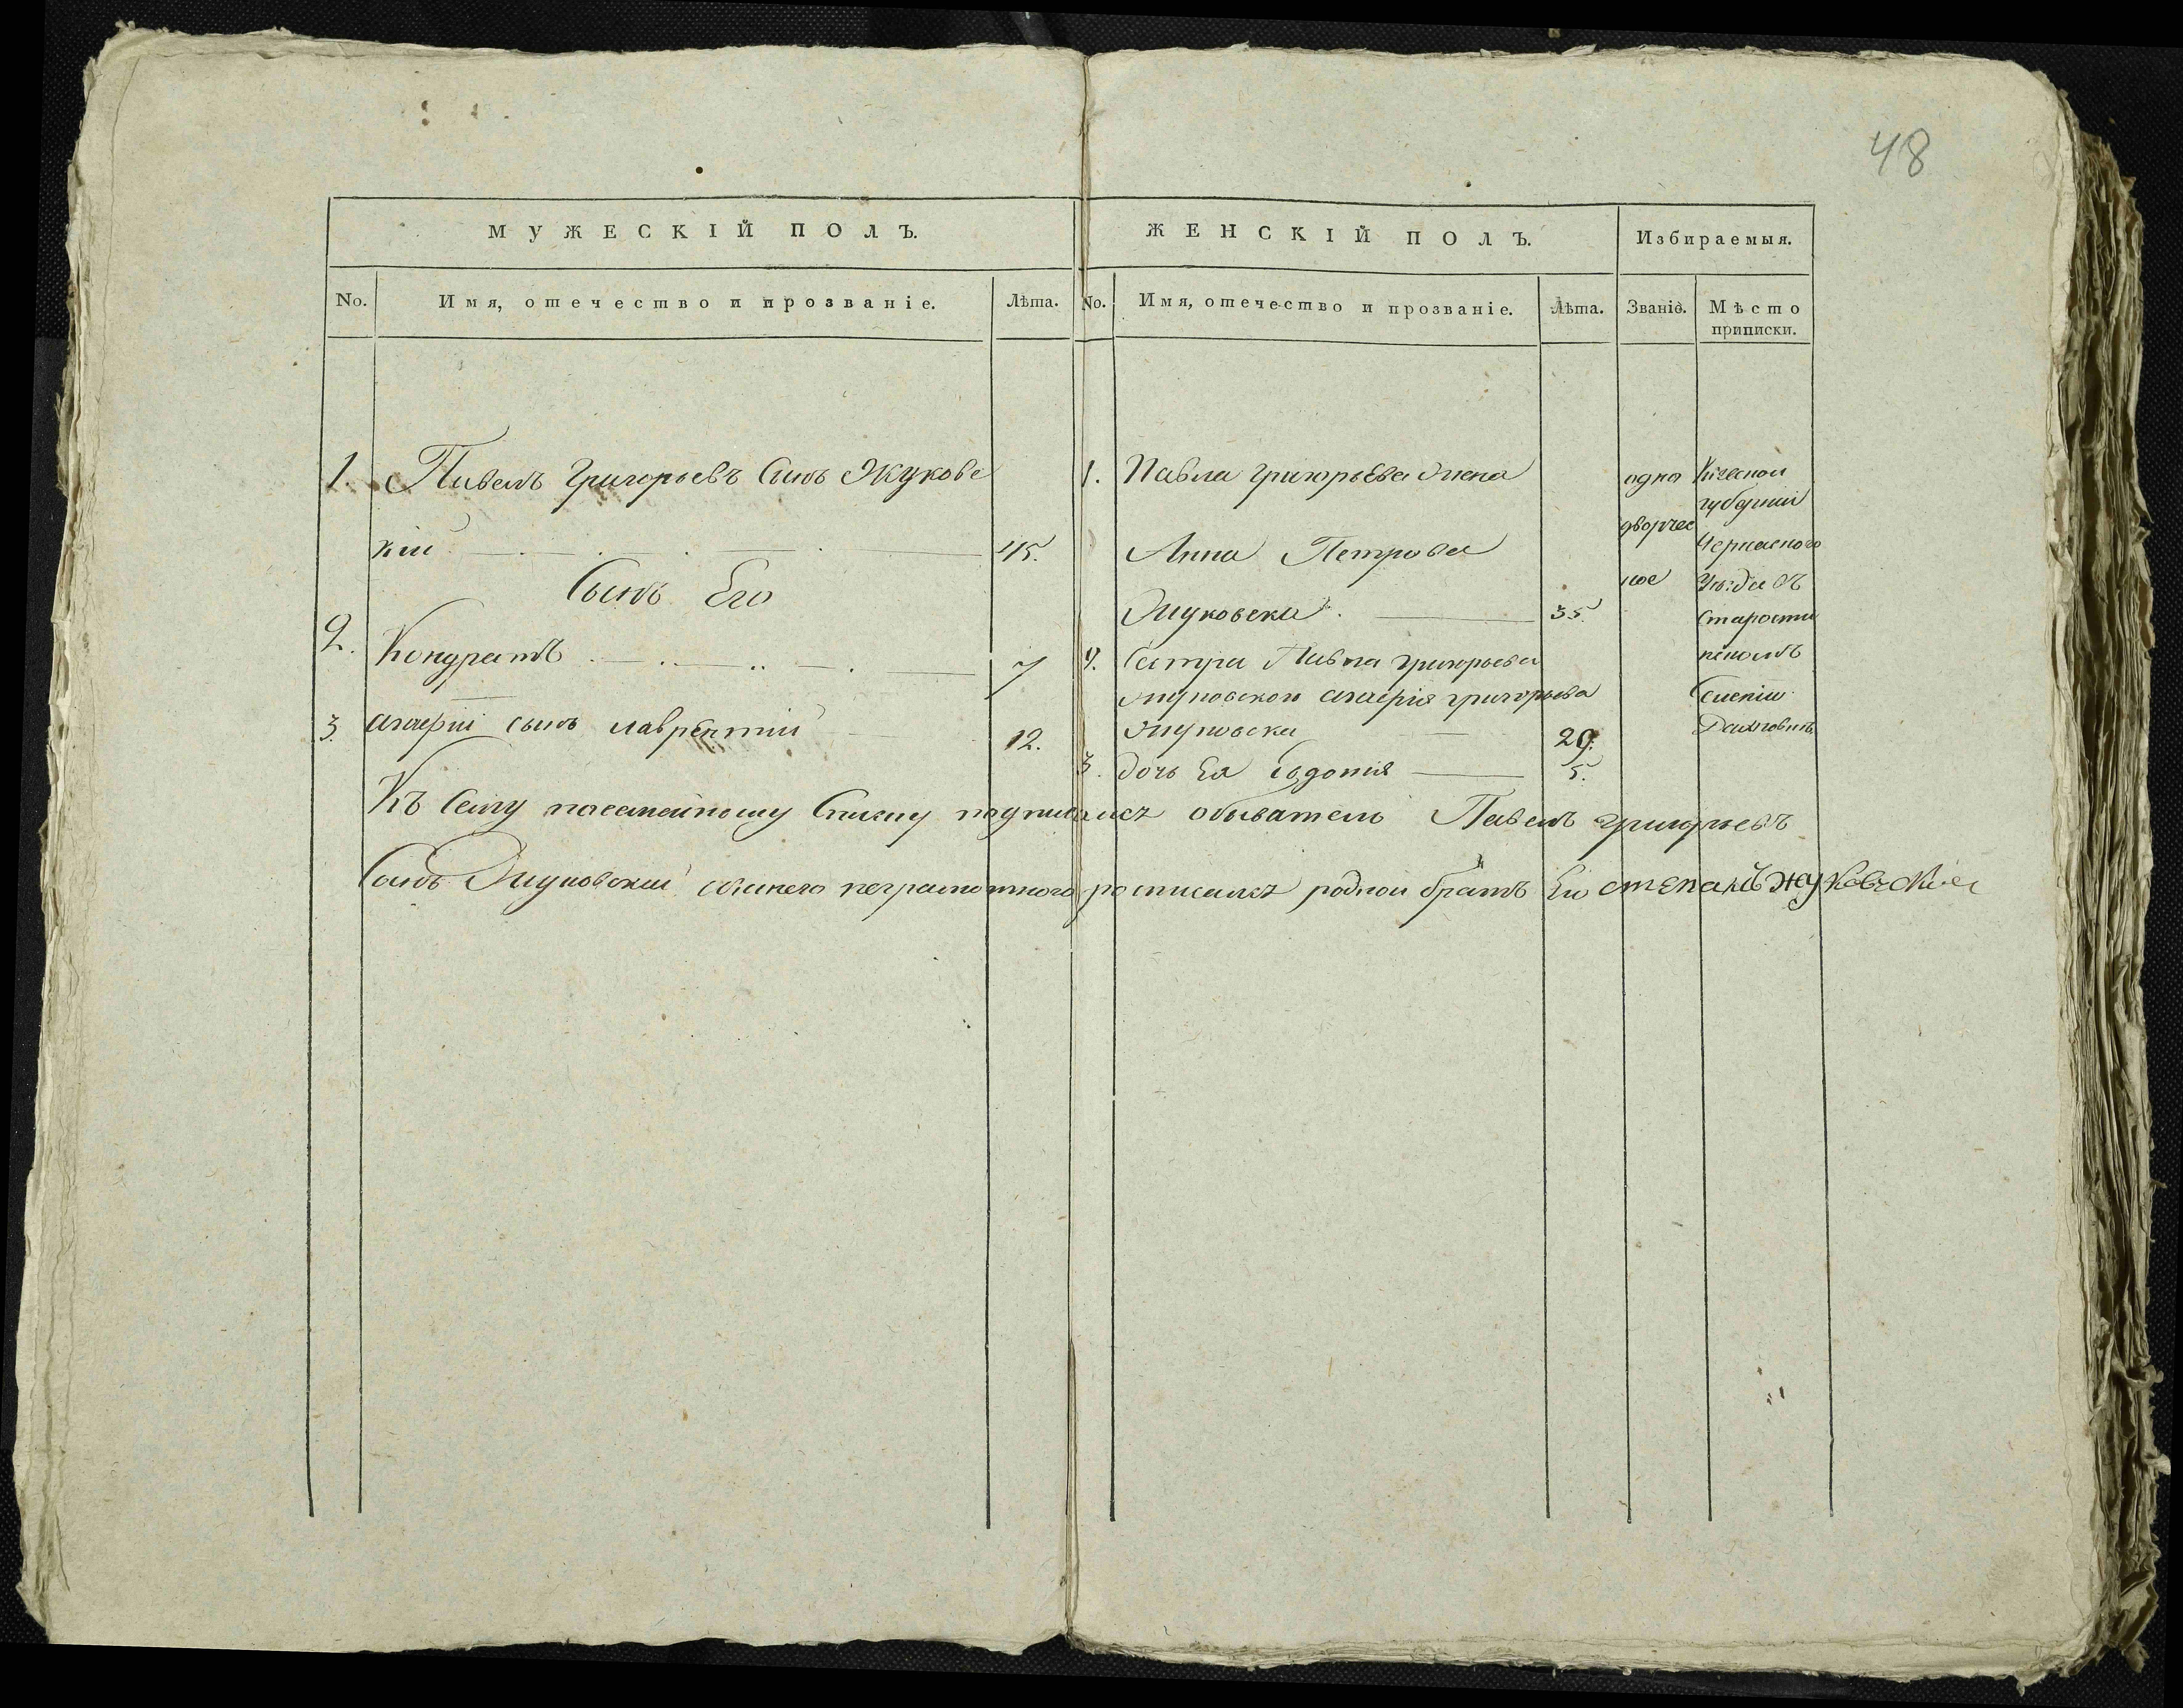 48
МУЖЕСКІЙ ПОЛЪ.
No. Имя, отечество и прозваніе. Лѣта.
1. Павелъ Григорьевъ Сынъ Жуковс
кій 45.
Сынъ Его
2. Кондратъ 7
3. сынъ лаврентий 12.
ЖЕНСКІЙ ПОЛЪ.
No. Имя, отечество и прозваніе. Лѣта.
1. Павла григорьева жена
Анна Петрова
Жуковска 35.
2. Сестра Павла григорьева
Жуковского григорьева
Жуковска 29.
3. дочь Ея Евдокия 5.
Избираемыя.
Званіе. Мѣсто
приписки.
одно
дворчес
кое
Киевской
губернии
Черкаского
Старости
Къ Сему посемейному Списку подписался обыватель Павелъ григорьевъ
Сынъ Жуковский неграмотного росписался родной братъ Его степанъ жуковский